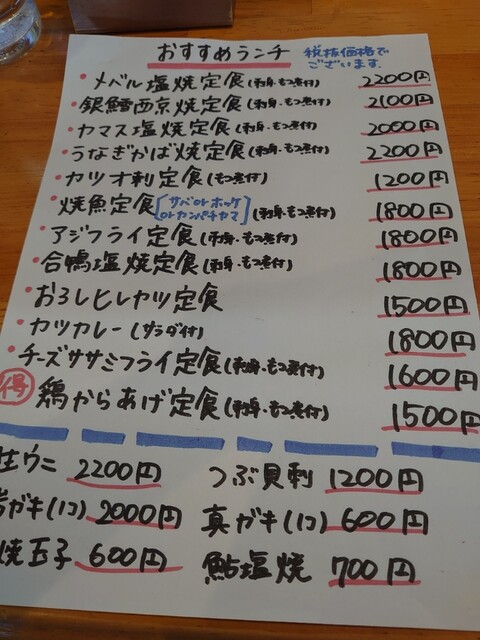 おすすめランチ 税抜価格で
ございます.
・メバル塩焼定食(刺身・もつ煮付) 2200円
・銀鱈西京焼定食(刺身・もつ煮付) 2100円
・ヤマス塩焼定食(刺身・もつ煮付) 2000円
・うなぎかば焼定食(刺身・もつ煮付) 2200円
・カツオ刺定食(もつ煮付) 1200円
・焼魚定食[サバorホッケ
orカンパチカマ](刺身・もつ煮付) 1800円
・アジフライ定食(刺身・もつ煮付) 1800円
・合鴨塩焼定食(刺身・もつ煮付) 1800円
・おろしヒレカツ定食 1500円
・カツカレー(サラダ付) 1800円
・チーズササミフライ定食(刺身・もつ煮付) 1600円
得 鶏からあげ定食(刺身・もつ煮付) 1500円
生ウニ 2200円 つぶ貝刺 1200円
岩ガキ(1コ) 2000円 真ガキ(1コ) 600円
焼玉子 600円 鮎塩焼 700円